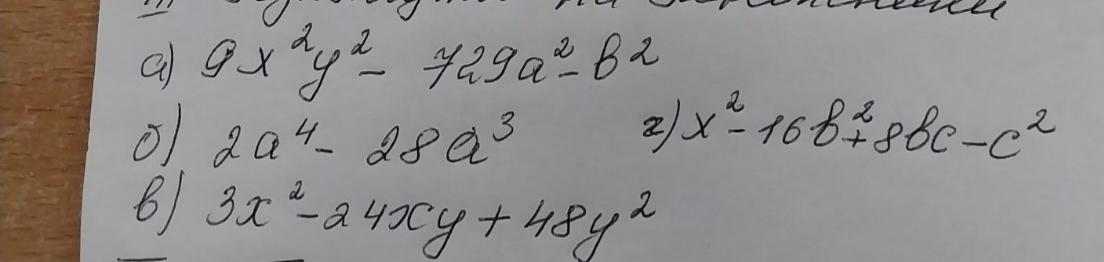 а) 9x²y² - 729a² - b²
б) 2a⁴ - 28a³
г) x² - 16b² + 8bc - c²
в) 3x² - 24xy + 48y²